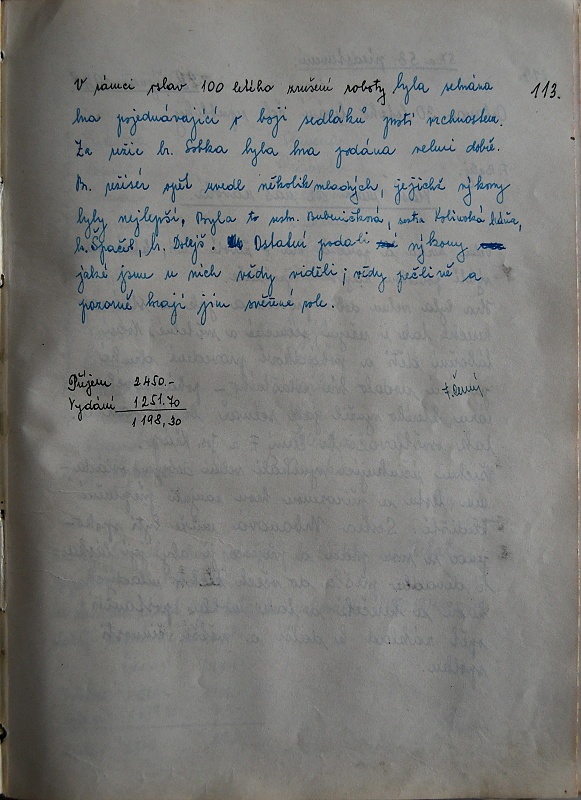 113.
V rámci oslav 100 letého zrušení roboty byla sehrána
hra pojednávající o boji sedláků proti vrchnostem.
Za režie br. Sobka byla hra podána velmi dobře.
Br. režisér opět uvedl několik mladých, jejichž výkony
byly nejlepší. Byla to sestr. Bubeníčková, sestra
br. Špaček, br. Dolejš. Ostatní podali výkony
jaké jsme u nich vždy viděli; vždy pečlivě a
pozorně hrají jim svěřené role.
Příjem 2450.-
Vydání 1251.70
1198,30
F. Černý